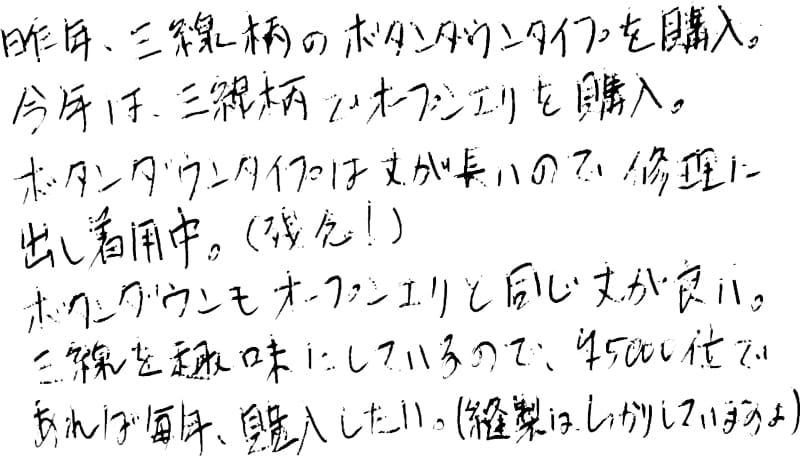 昨年、三線柄のボタンダウンタイプを購入。
今年は、三線柄でオープンエリを購入。
ボタンダウンタイプは丈が長いので修理に
出し着用中。(残念!)
ボタンダウンもオープンエリと同じ丈が良い。
三線を趣味にしているので、¥5000位で
あれば毎年、購入したい。(縫製はしっかりしていますよ)